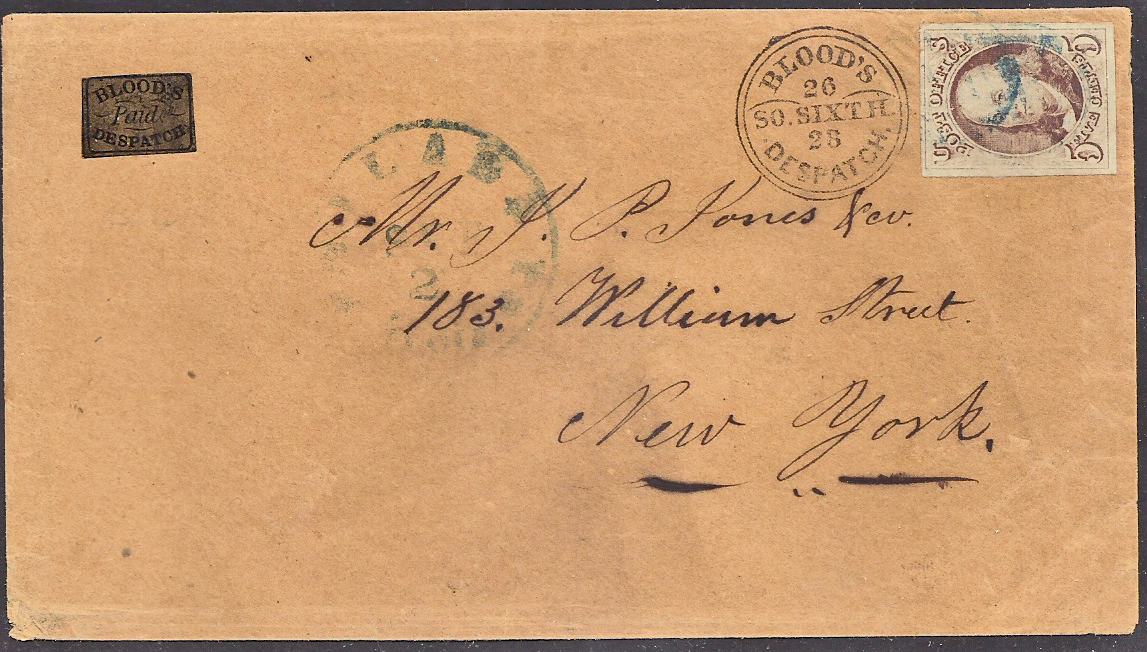 BLOOD'S
Paid
DESPATCH
BLOOD'S
26
SO. SIXTH.
28
DESPATCH.
POST OFFICE
2
Mr. J. P. Jones & co.
183. William Street.
New York.